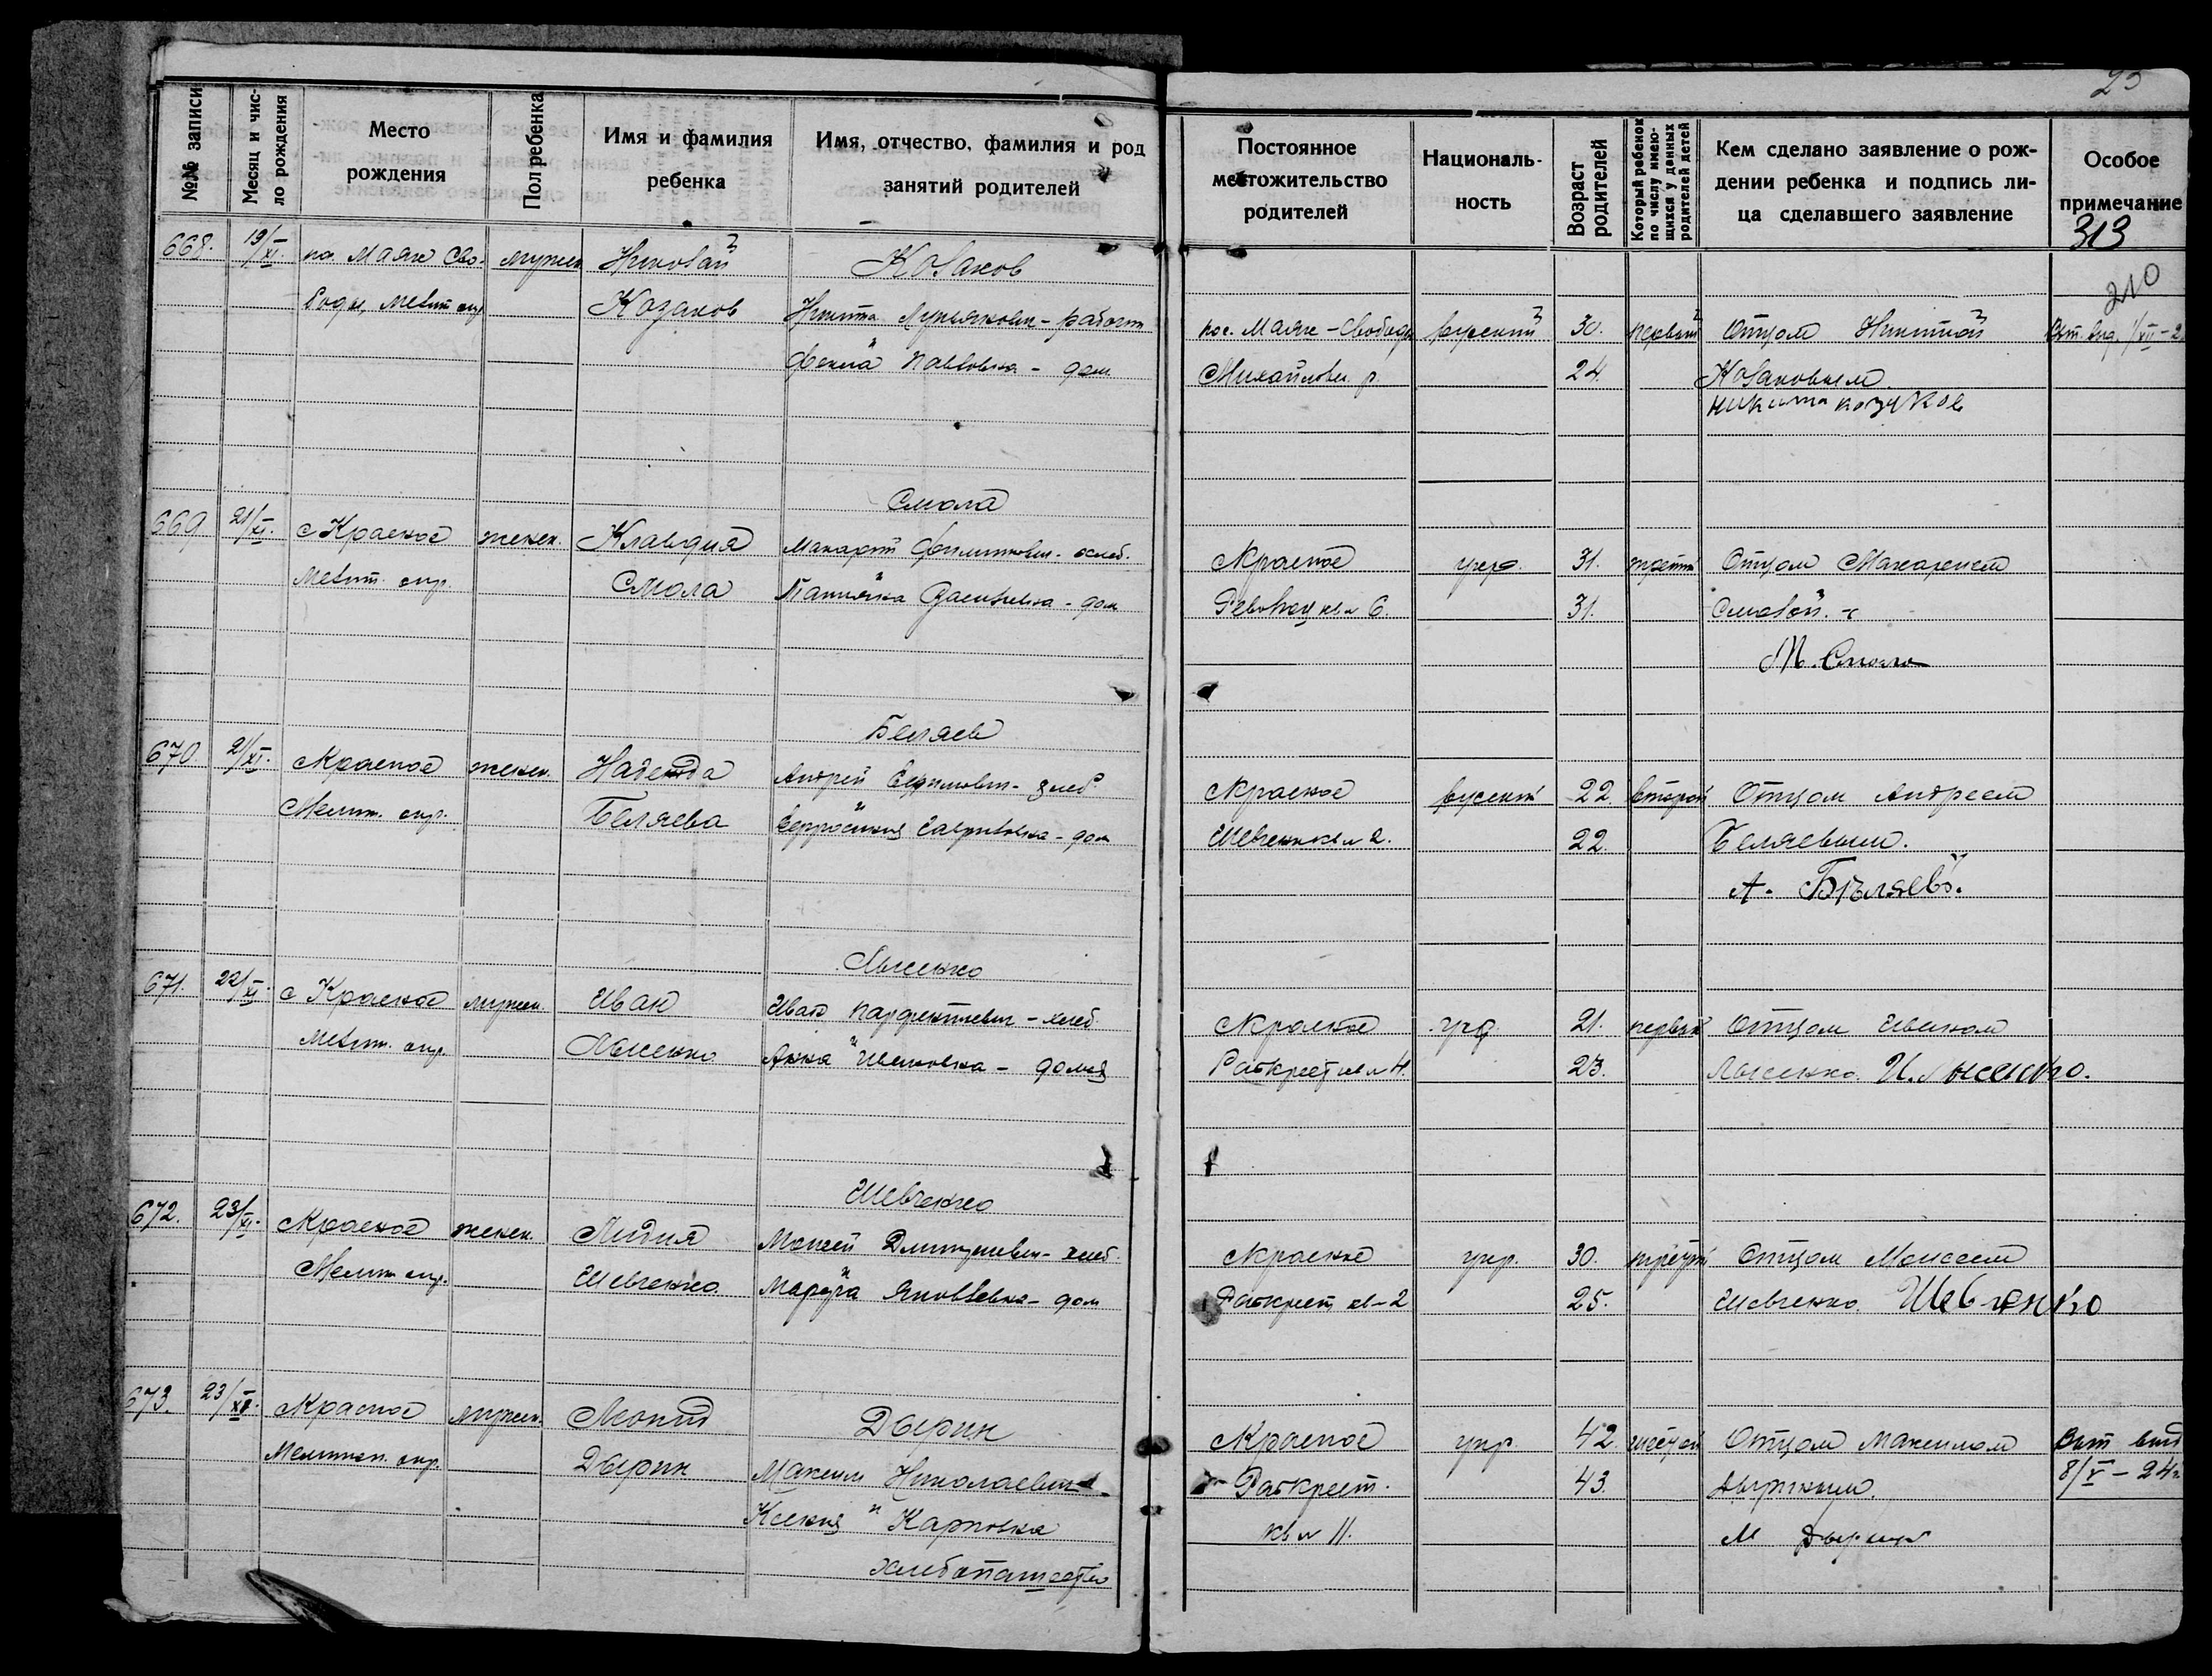 25
№№ записи
Месяц и чис-
ло рождения
Место
рождения
Пол ребенка
Имя и фамилия
ребенка
Имя, отчество, фамилия и род
занятий родителей
Постоянное
местожительство
родителей
Националь-
ность
Возраст
родителей
Который ребенок
по числу имею-
щихся у данных
родителей детей
Кем сделано заявление о рож-
дении ребенка и подпись ли-
ца сделавшего заявление
Особое
примечание
313
210
668. 19/XI. Маяк Сво- мужск Николай Козаков
боды, Мелит окр Козаков Никита Лукьянович - работн пос. Маяк-Свободы русский 30. первый Отцом Никитой
Павловна - дом. Михайловск. р. 24. Козаковым.
Никита Козаков
Смола
669 21/XI. с Красное женск. Клавдия Макарий Филиппович с Красное укр. 31. третий Отцом Макарием
Мелит. окр. Смола Васильевна - дом 31. Смолой.
М. Смола
Беляев
670. 21/XI. с Красное женск. Надежда Андрей Ефимович - хлеб с Красное русский 22 второй Отцом Андреем
Мелит. окр. Беляева Ефросиния Гавриловна - дом Шевченк кв № 2. 22. Беляевым.
А. Бѣляевъ.
Лысенко
671. 22/XI. с Красное мужск. Иван Иван Парфентиевич - хлеб с Красное укр. 21. первый Отцом Иваном
Мелит. окр. Лысенко Анна - домаш Раскрест кв № 4. 23. Лысенко. И. Лысенко.
Шевченко
672. 23/XI. с Красное женск. Лидия Моисей - хлеб. с Красное укр. 30. третий Отцом Моисеем
Мелит окр. Шевченко Марфа Яковлевна - дом Раскрест кв-2 25. Шевченко Шевченко
673. 23/XI. с Красное мужск. Леонид Дырин с Красное укр. 42 шестой Отцом Максимом Вып выд
Мелитоп. окр. Дырин Максим Николаевич Раскрест. 43. Дыриным. 8/V - 24г.
Ксения " Карповна кв № 11. М Дырин
хлебопашество